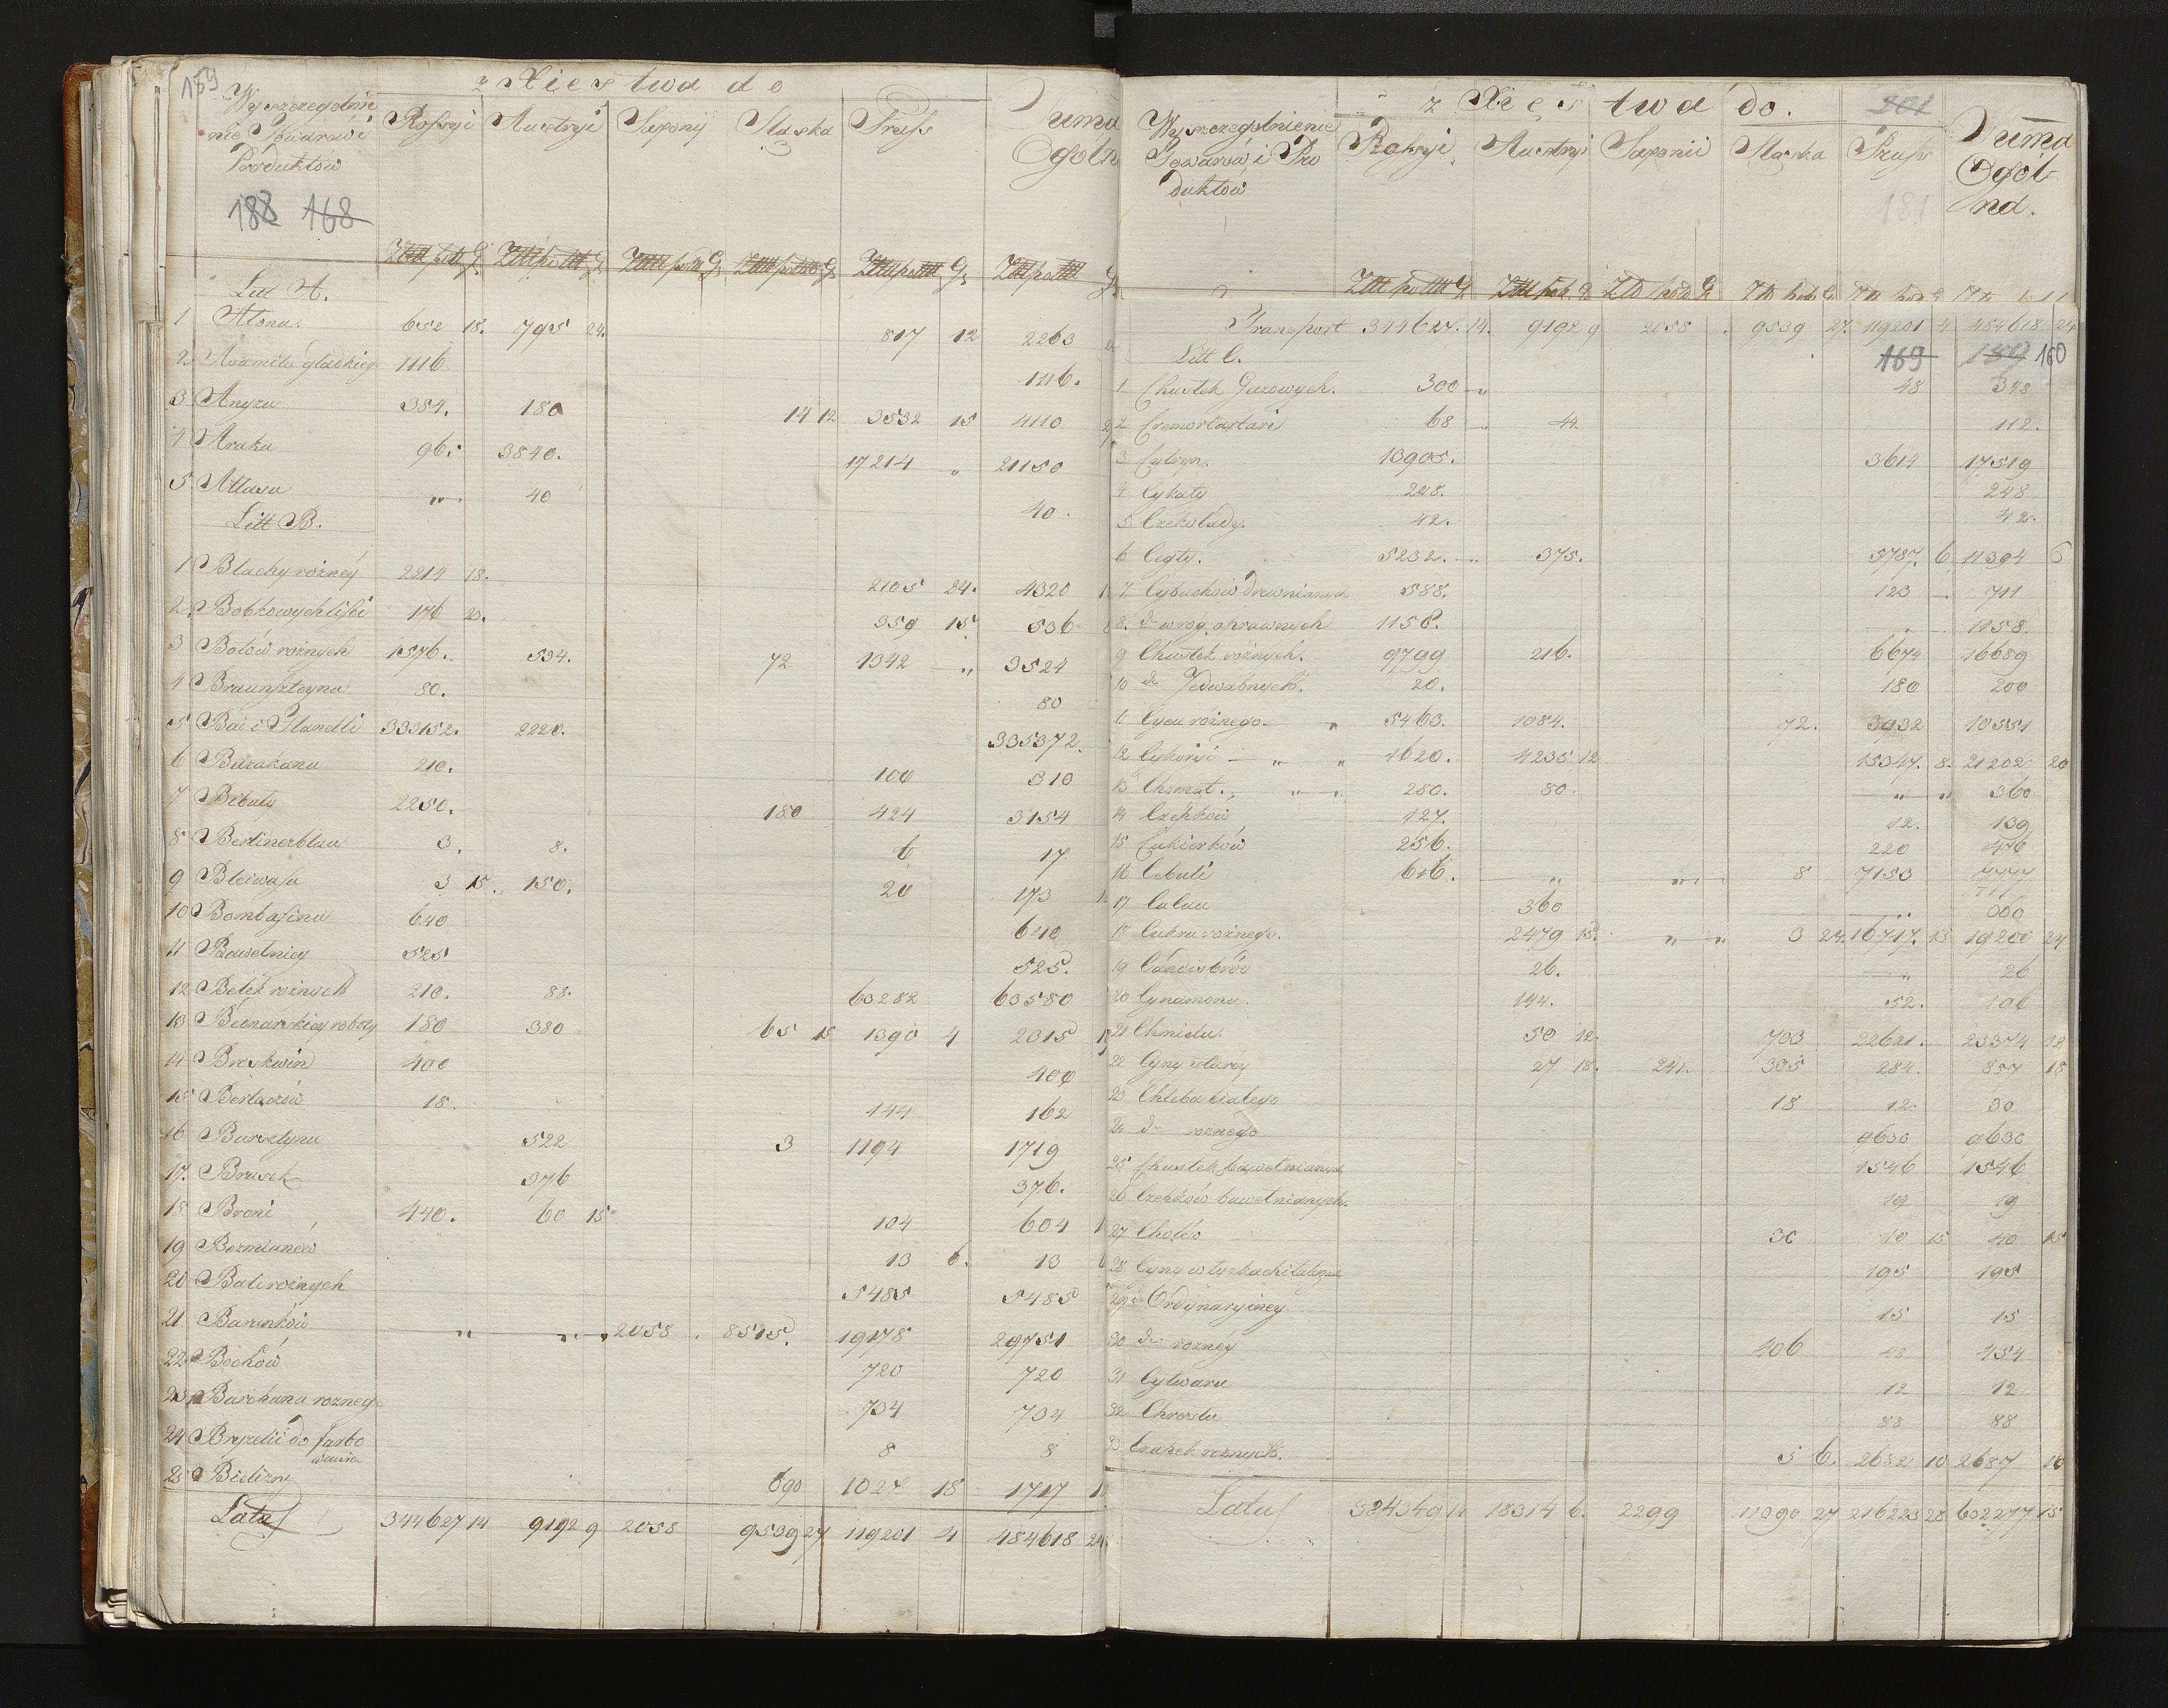 159
z Xięstwa do
Wyszczegolnie
nie Towarów i
Produktow
Rossyi Austryi Saxonij Slaska Pruss Suma Ogoln
188 168
Litt A.
1 Ałonu. 652 18. 795 24. 817 12 2263
2 1116 1116.
3 Anyżu 384. 180 14 12 3532 15 4110
4 Araku 96. 3840. 17214 „ 21150
5 Atlasu „ 40 40.
Litt B.
1 Blachy rożnéy 2214 18. 2105 24. 4320
2 Bobkowych liści 176 23. 359 15 536
3 Botów rożnych 1576. 534. 72 1342 „ 3524
4 Braunsteynu 80. 80
5 Bai i Flanelli 333152. 2220. 335372.
6 Barakanu 210. 100 310
7 Bibuły 2250. 180 424 3154
8 Berlinerblau 3. 8. 6 17
9 Bleiwasu 3 15. 150. 20 173
10 Bombasinu 640 640
11 Bawelnicy 525 525.
12 Belek rożnych 210. 88. 63282 63580
13 Bednarskiey roboty 180 380 65 15 1390 4 2015
14 Broskwin 400 400
15 Berlaczów 18. 144 162
16 Bursztynu 522 3 1194 1719
17. Brusek 376 376.
18 Broni 440. 60 15 104 604
19 Bezmianów 13 6. 13
20 Bali rożnych 5485 5485
21 Baranków „ „ 2058 . 8515. 19178 29751
22 Bochów 720 720
23 Barchanu rozneg 734 734
24 Bryzelii do farbo
wania 8 8
25 Bielizny 690 1027 18 1717
Latus 344627 14 9192 9 2058 9539 27 119201 4 484618 24
z Xięstwa do.
181
Wyszczegolnienie
Towarów i Pro
duktow
Rossyi Austryi Saxonii Slaska Pruss Suma
Ogól-
na.
181
Transport 344627. 14. 9192 9 2058 . 9539 27. 119201 4 484618 24
Litt C.
169 159 160
1 Chustek Gazowych. 300 „ 48 348
2 Cremortartari 68 44. 112.
3 Cytryn. 13905. 3614 17519
4 Cykaty 248. 248
5 Czekolady. 42. 42.
6 Cegły. 5232. 375. 5787. 6 11394 6
7 Cybuchów drewnianych 588. 123 711
8. do w rog oprawnych 1158. 1158.
9 Chustek rożnych. 9799 216. 6674 16689
10 do Jedwabnych. 20. 180 200
11 Cycu rożnego. „ 5463. 1084. 72. 3932 10551
12 Cykorii „ „ 1620. 4235 12 15347. 8. 21202 20
13 Chomąt. „ 280. 80. „ „ 360
14 Czepków 127. 12. 139
15 Cukierków 256. 220 476
16 Cebuli 616. „ „ 8 7153 7777
17 Calau 360 360
18 Cukru rożnego. 2479 15. „ „ 3 24. 16717. 15 19200 24
19 26. „ 26
20 Cynamonu. 144. 52. 196
21 Chmielu. 50 12. 703 22621. 23374 12
22 Cyny starey 27 18. 241. 305 284. 857 18
23 Chleba białego 18 12. 30
24 do rożnego 9630 9630
25 Chustek bawelnianych 1546 1546
26 Czepków bawelnianych. 19 19
27 30 10 15 40 15
28 Cyny w łyżkach i talerzach 195 195
29 do Ordynaryiney 15 15
30 do rożnéy 406 48 454
31 Cytwaru 12 12
32 88 88
33 Czapek rożnych. 5 6. 2682 10 2687 16
Latus 384349 14 18314 6. 2299 11090 27 216223 28 602277 15